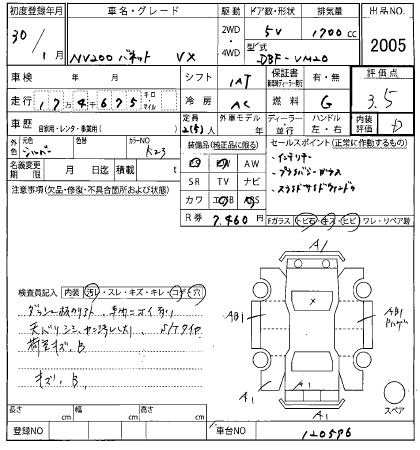 初度登録年月 車名・グレード 駆動 ドア数・形状 排気量 出品NO.
30/1月 NV200 バネット VX 2WD・4WD 5V 1700cc 2005
型式 DBF-VM20
車検 年 月 シフト 1AT 保証書 有・無 評価点
走行 17万4675 キロ マイル 冷房 AC 燃料 G 3.5
車歴 自家用・レンタ・事業用( ) 定員 2(5)人 外車モデル 年 ディーラー・並行 ハンドル 左・右 内装評価 D
外色 元色 シルバー 色替 カラーNO K23 装備品(純正品に限る) セールスポイント(正常に作動するもの)
名義変更期限 月 日迄 積載 t PS PW AW ・インテリキー
注意事項(欠品・修復・不具合箇所および状態) SR TV ナビ ・プライバシーガラス
カワ エアB ABS ・スライドサイドウィンドウ
R券 7,460円 Fガラス トビ石・キズ・ヒビ ワレ・リペア跡
検査員記入 内装 汚レ・スレ・キズ・キレ・コゲ・穴
荷室キズ、B
キズ、B
A1
AB1
AB1
ドアハゲ
A1
A1
A1
スペア
長さ cm 幅 cm 高さ cm
登録NO 車台NO 120596